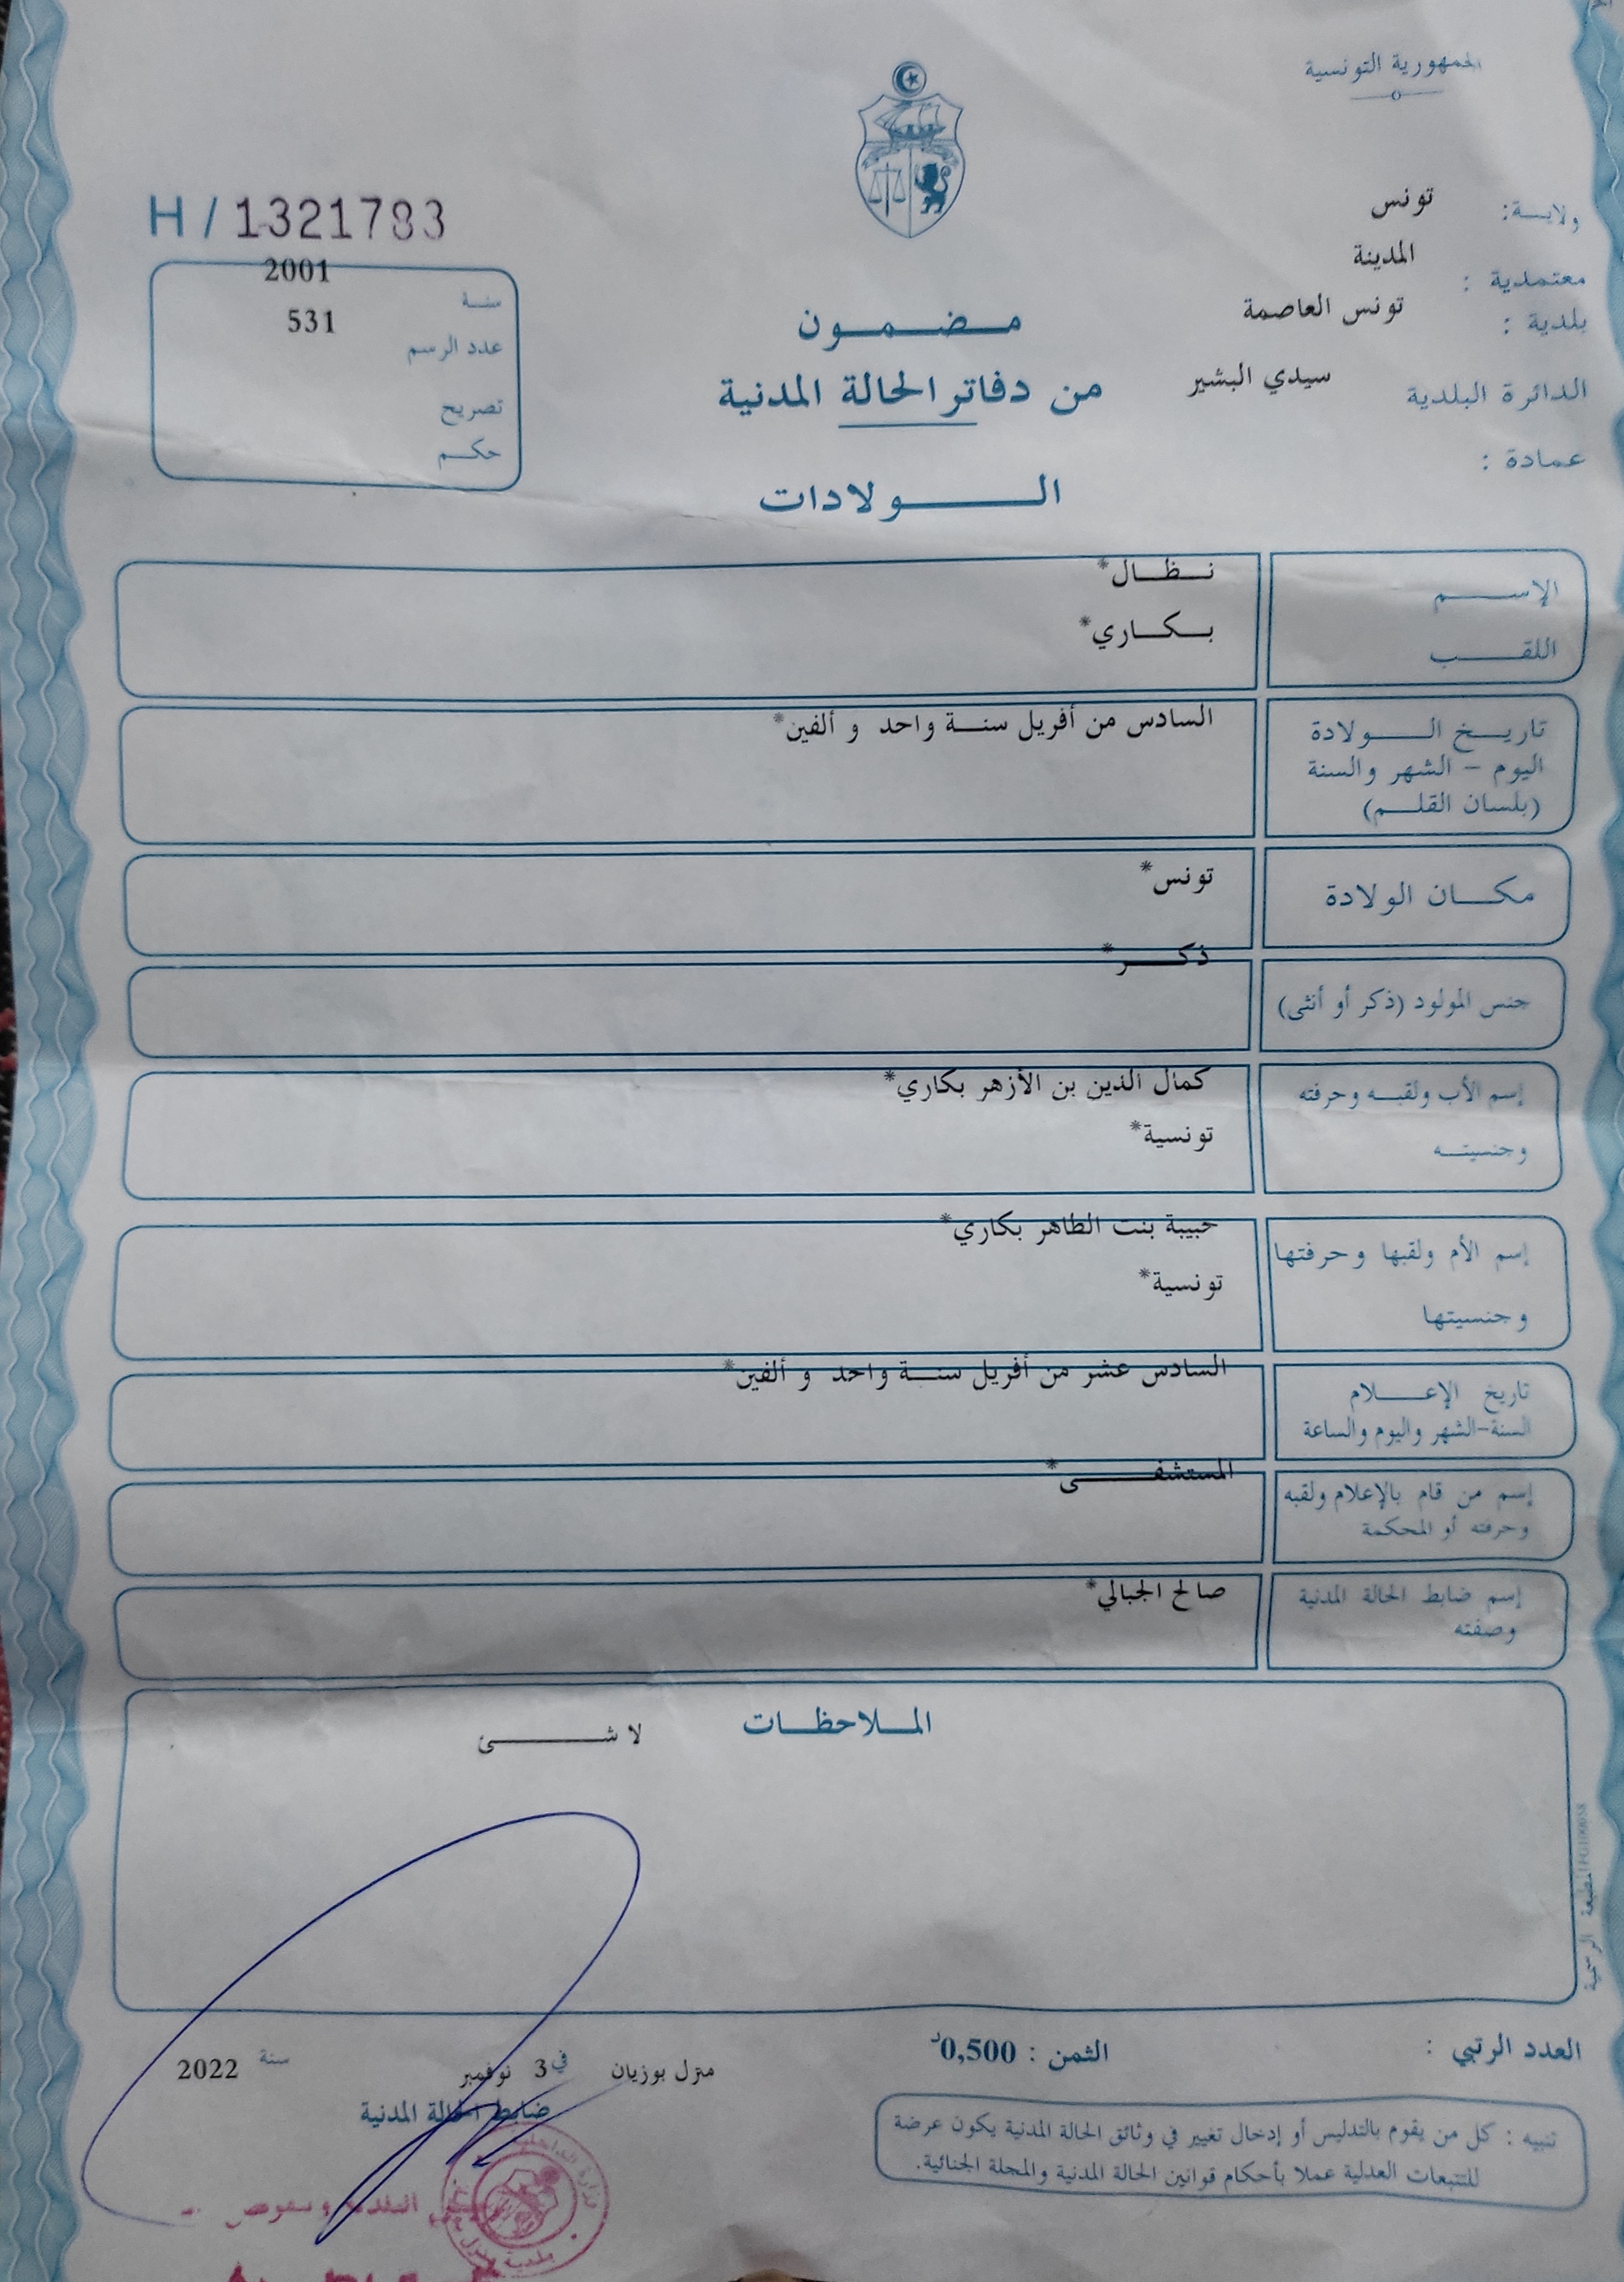 الجمهورية التونسية
ولاية: تونس
معتمدية : المدينة
بلدية : تونس العاصمة
الدائرة البلدية سيدي البشير
عمادة :
H / 1321783
سنة 2001
عدد الرسم 531
تصريح
حكم
مضمون
من دفاتر الحالة المدنية
الولادات
الإسم نظال*
اللقب بكاري*
تاريخ الولادة السادس من أفريل سنة واحد و ألفين*
اليوم - الشهر والسنة
(بلسان القلم)
مكان الولادة تونس*
جنس المولود (ذكر أو أنثى) ذكر*
إسم الأب ولقبه وحرفته كمال الدين بن الأزهر بكاري*
وجنسيته تونسية*
إسم الأم ولقبها وحرفتها حبيبة بنت الطاهر بكاري*
وجنسيتها تونسية*
تاريخ الإعلام السادس عشر من أفريل سنة واحد و ألفين*
السنة-الشهر واليوم والساعة
إسم من قام بالإعلام ولقبه المستشفى*
وحرفته أو المحكمة
إسم ضابط الحالة المدنية صالح الجبالي*
وصفته
الملاحظات
لا شئ
المطبعة الرسمية
العدد الرتبي :
الثمن : 0,500د
منزل بوزيان في 3 نوفمبر سنة 2022
ضابط الحالة المدنية
تنبيه : كل من يقوم بالتدليس أو إدخال تغيير في وثائق الحالة المدنية يكون عرضة
للتتبعات العدلية عملا بأحكام قوانين الحالة المدنية والمجلة الجنائية.